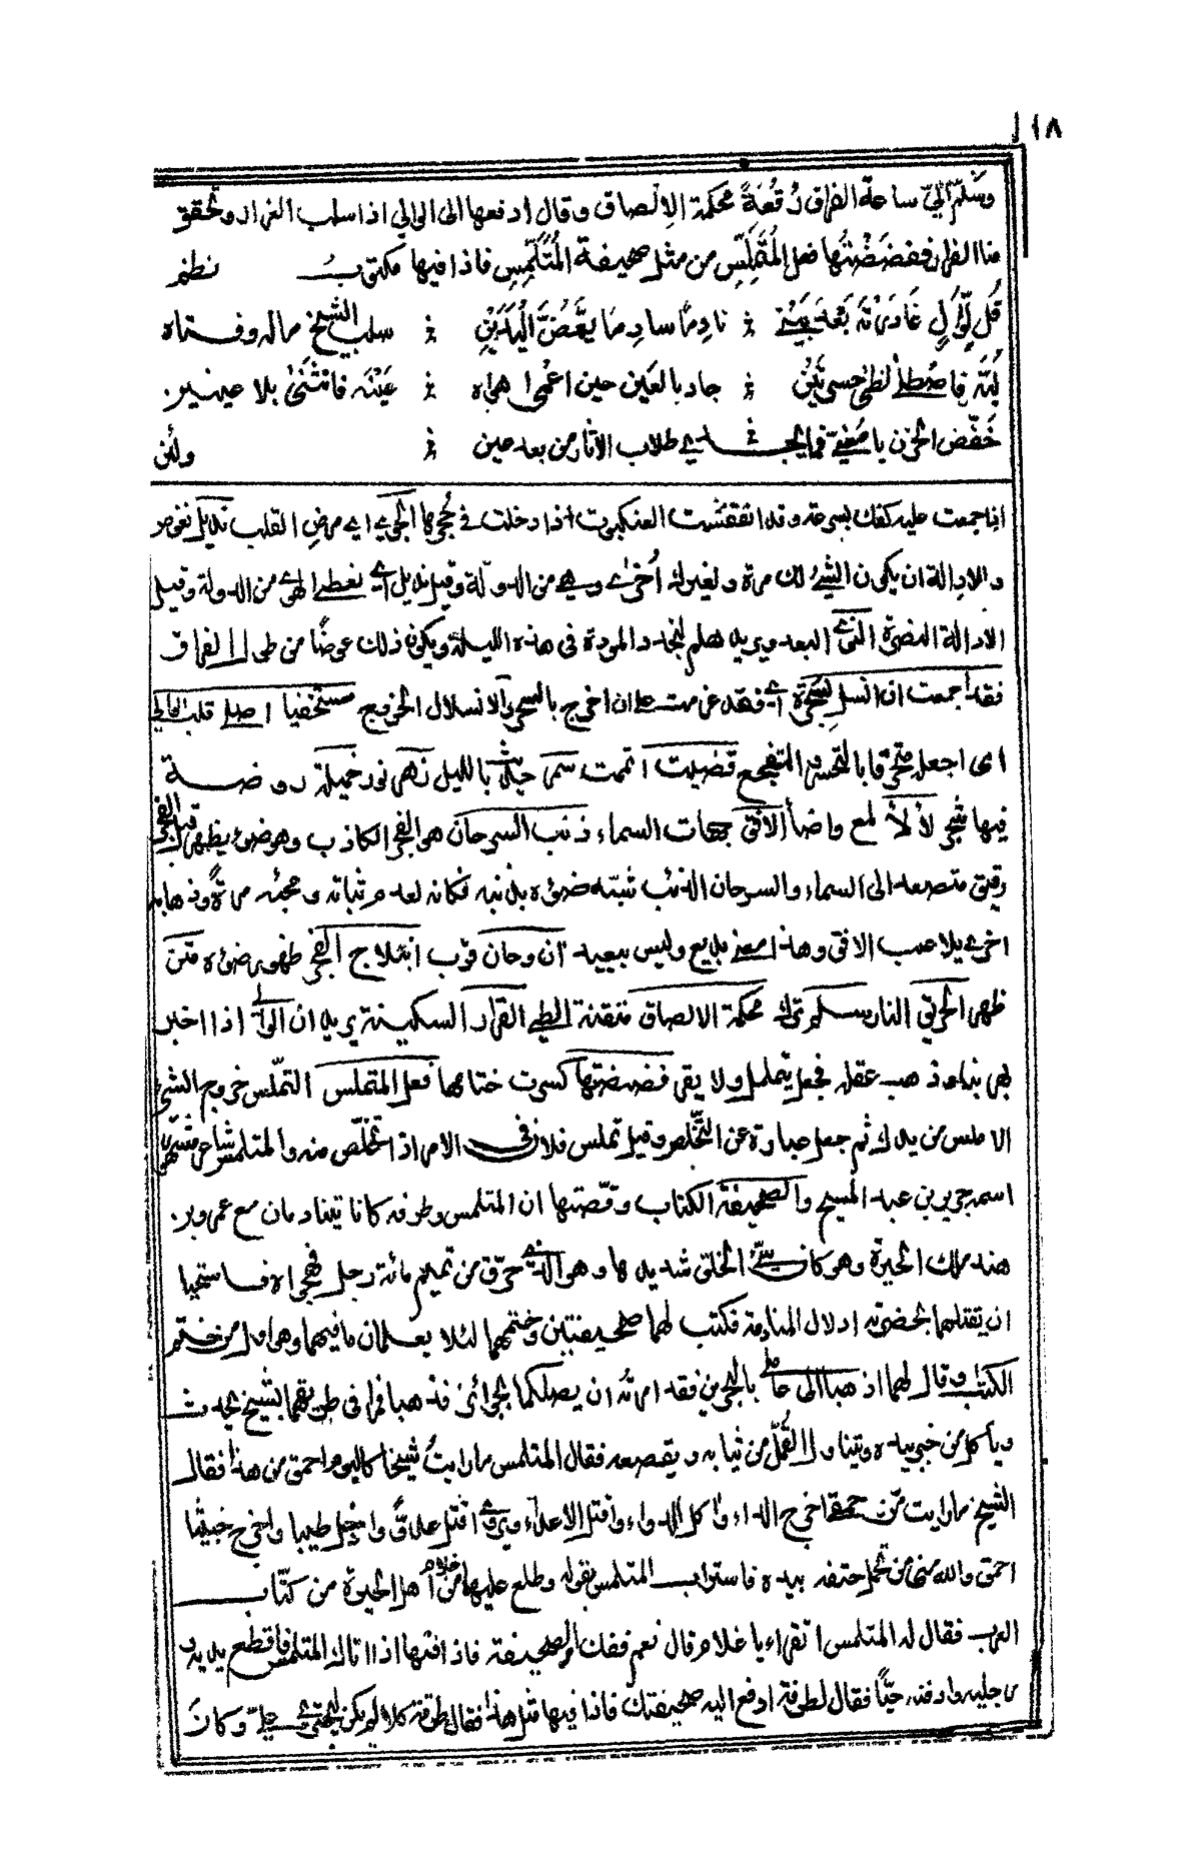 ١١٨
وسلّم اليّ ساعة الفراق رُقعةً محكمة الالصاق وقال ادفعها الى الوالي اذا سلب القرار وتحقق
منا الفرار ففضضتُها فعل المُتَمَلِّسِ من مثل صحيفة المُتَلَمِّسِ فاذا فيها مكتوب نظم
قُل لِوالٍ غادرته بَعد بَيني نادِمًا سادِمًا يَعَضُّ اليَدَيْنِ سلب الشيخ ماله وفتاه
لُبّه فاصطلى لظى حسرتين جاد بالعين حين اعمى هواه عَيْنَه فانثنى بلا عينين
خَفِّض الحزن يا مُعَنّى فما يجدي طلاب الآثار من بعد عين ولئن
اذا جمعت عليه كفك بسرعة وقد انقفشت العنكبوت اذا دخلت في جُحرها الجوى اي مرض القلب نُديل نعوض
والادالة ان يكون الشيء لك مرة ولغيرك أخرى وهي من الدولة وقيل نديل اي نعطي الهوى من الدولة وقيل
الادالة النصرة النوى البعد ويريد هلم لنجدد المودة في هذه الليلة ويكون ذلك عوضًا من طول الفراق
فقد اجمعت ان انسل بسحرة اي فقد عزمت على ان اخرج بالسحر والانسلال الخروج مستخفيا اصلي قلب الوالي
اى اجعله محترقا بالتحسر والتفجع قضيت اتممت سمر حديث بالليل زهر نور خميلة روضة
فيها شجر لألأ لمع واضأ الافق جهات السماء ذنب السرحان هو الفجر الكاذب وهو ضوء يظهر قبل الفجر
دقيق متصعد الى السماء والسرحان الذئب شبه ضوءه بذنبه فكانه لعدم ثباته ومجيئه مرةً وذهابه
اخرى يلاعب الافق وهذا معنى بديع وليس ببعيد آن وحان قرب ابتلاج الفجر ظهور ضوءه متن
ظهر الحريق النار سلم ترك محكمة الالصاق متقنة الطي القرار السكينة يريد ان الوالي اذا اخبر
بفرارنا ذهب عقله فجعل يتململ ولا يقر ففضضتها كسرت ختامها فعل المتملس التملّس خروج الشيء
الاملس من يدك ثم جعل عبارة عن التخلّص وقيل تملس فلان في الامر اذا تخلّص منه والمتلمس شاعر مشهور
اسمه جرير بن عبد المسيح والصحيفة الكتاب وقصّتها ان المتلمس وطرفه كانا يتنادمان مع عمرو بن
هند ملك الحيرة وهو كان سيّئ الخلق شديدها وهو الذي حرّق من تميم مائة رجل فهجواه فاستحيا
ان يقتلهما بحضرته ادلال المنادمة فكتب لهما صحيفتين وختمهما لئلا يعلمان ما فيهما وهو اول من ختم
الكتاب وقال لهما اذهبا الى عاملي بالبحرين فقد امرتُه ان يصلكما بجوائز فذهبا فمرا في طريقهما بشيخ يحدث
ويأكل من خبز بيده ويتناول القُمّل من ثيابه ويقصعه فقال المتلمس ما رايتُ شيخا كاليوم احمق من هذا فقال
الشيخ ما رايت من حمقي اخرج الداء واكل الدواء واقتل الاعداء ويروى اقتل عدوّا وادخل طيبا واخرج خبيثا
احمق والله منى من يحمل حتفه بيده فاستراب المتلمس بقوله وطلع عليهما غلام من اهل الحيرة من كتّاب
العرب فقال له المتلمس اتقراء يا غلام قال نعم ففك له الصحيفة فاذا فيها اذا اتاك المتلمس فاقطع يديه
ورجليه وادفنه حيّا فقال لطرفة ادفع اليه صحيفتك فاذا فيها مثل هذا فقال طرفة كلا لم يكن ليجترئ عليّ وكان